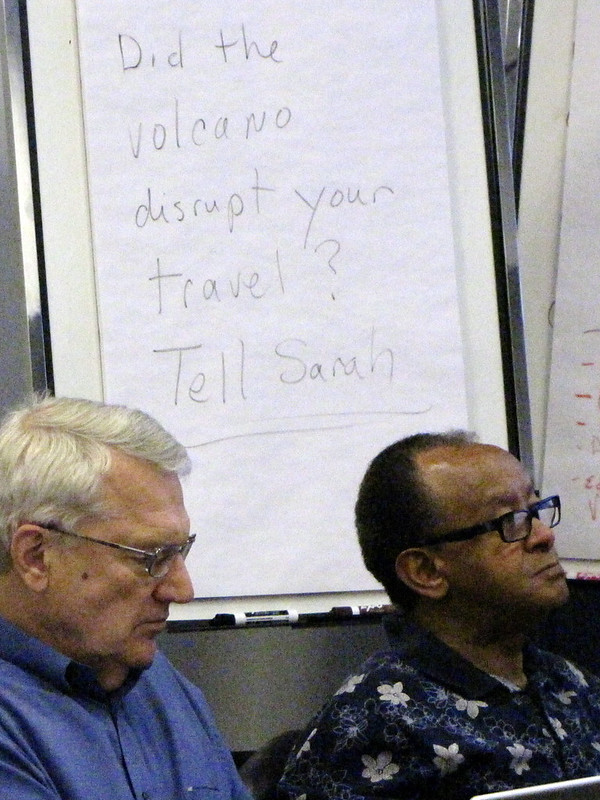 Did the
volcano
disrupt your
travel?
Tell Sarah